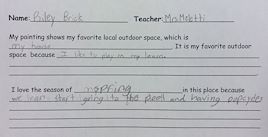 Name: Riley Brick Teacher: Mrs. Meletti
My painting shows my favorite local outdoor space, which is
my house. It is my favorite outdoor
space because I like to play in my lawn.
I love the season of spring in this place because
we start going to the pool and having popsycles